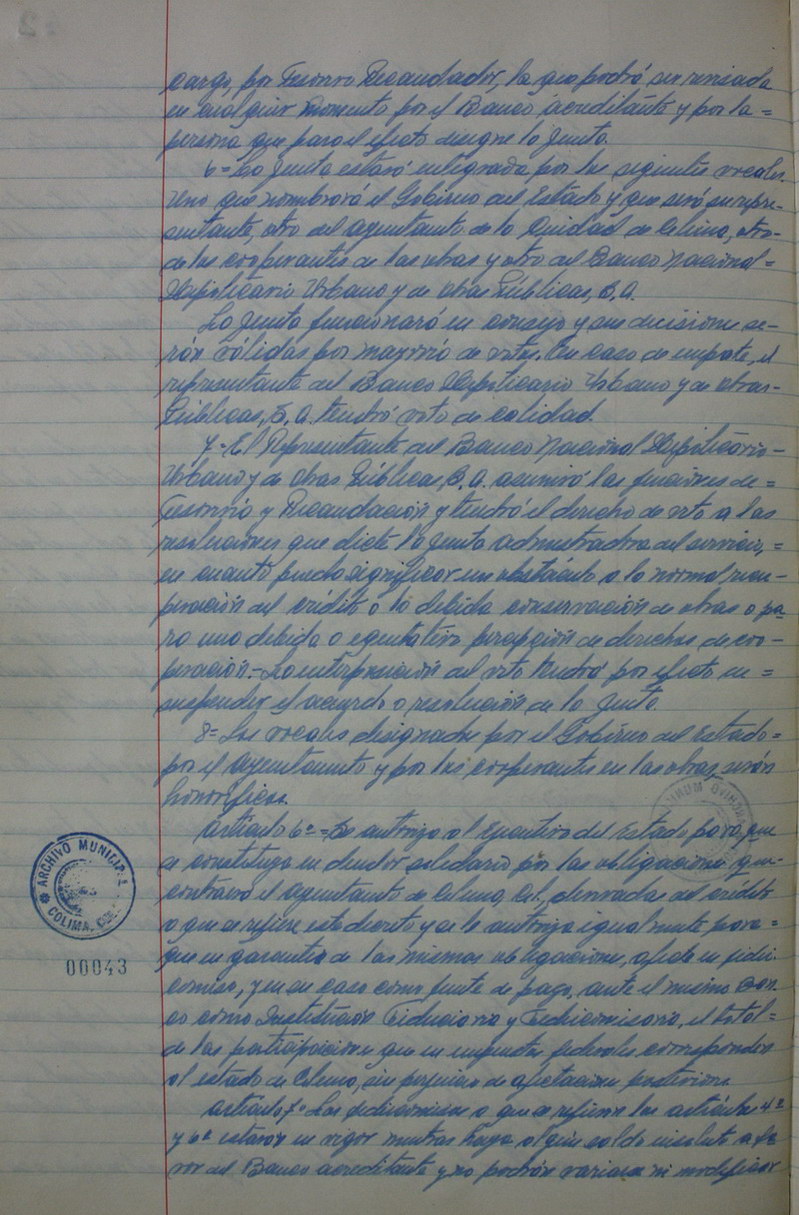 cargo, por Tesorero Recaudador, la que podrá ser revisada
en cualquier momento por el Banco acreditante y por la=
persona que para el efecto designe la Junta.
6= La Junta estará integrada por los siguientes vocales.
Uno que nombrará el Gobierno del Estado y que será su repre-
sentante, otro del ayuntamiento de la Ciudad de Colima, otro-
de los cooperantes de las obras y otro del Banco Nacional=
Hipotecario Urbano y de obras Públicas, S.A.
La Junta funcionará en consejo y sus decisiones se-
rán válidas por mayoría de votos. En caso de empate, el
representante del Banco Hipotecario Urbano y de obras-
Públicas, S.A. tendrá voto de calidad.
7.- El Representante del Banco Nacional Hipotecario-
Urbano y de Obras Públicas, S.A. asumirá las funciones de=
Tesorería y Recaudación y tendrá el derecho de veto a las
resoluciones que dicte la Junta administradora del servicio,=
en cuanto pueda significar un obstáculo a la normal recu-
peración del crédito o la debida conservación de obras o pa-
ra una debida o equitativa percepción de derechos de coo-
peración.- La interposición del veto tendrá por efecto =
suspender el acuerdo o resolución de la Junta
8= Los vocales designados por el Gobierno del Estado-
por el ayuntamiento y por los cooperantes en las obras, serán
honoríficos.
Artículo 6º= Se autoriza al Ejecutivo del Estado para que
se constituya en deudor solidario por las obligaciones que-
contraerá el ayuntamiento de Colima, Col., derivadas del crédito
a que se refiere este decreto y se le autoriza igualmente para=
que en garantía de las mismas obligaciones, afecte en fidei-
comiso, y en su caso como fuente de pago, ante el mismo Ban-
co como Institución Fiduciaria y Fideicomisaria, el total=
de las participaciones que en impuestos federales correspondan
al estado de Colima, sin perjuicio de afectaciones posteriores.
Artículo 7º Los fideicomisos a que se refieren los artículos 4º
y 6º estarán en vigor mientras haya algún saldo insoluto a fa-
vor del Banco acreditante y no podrán variarse ni modificar
ARCHIVO MUNICIPAL
COLIMA, COL.
00043